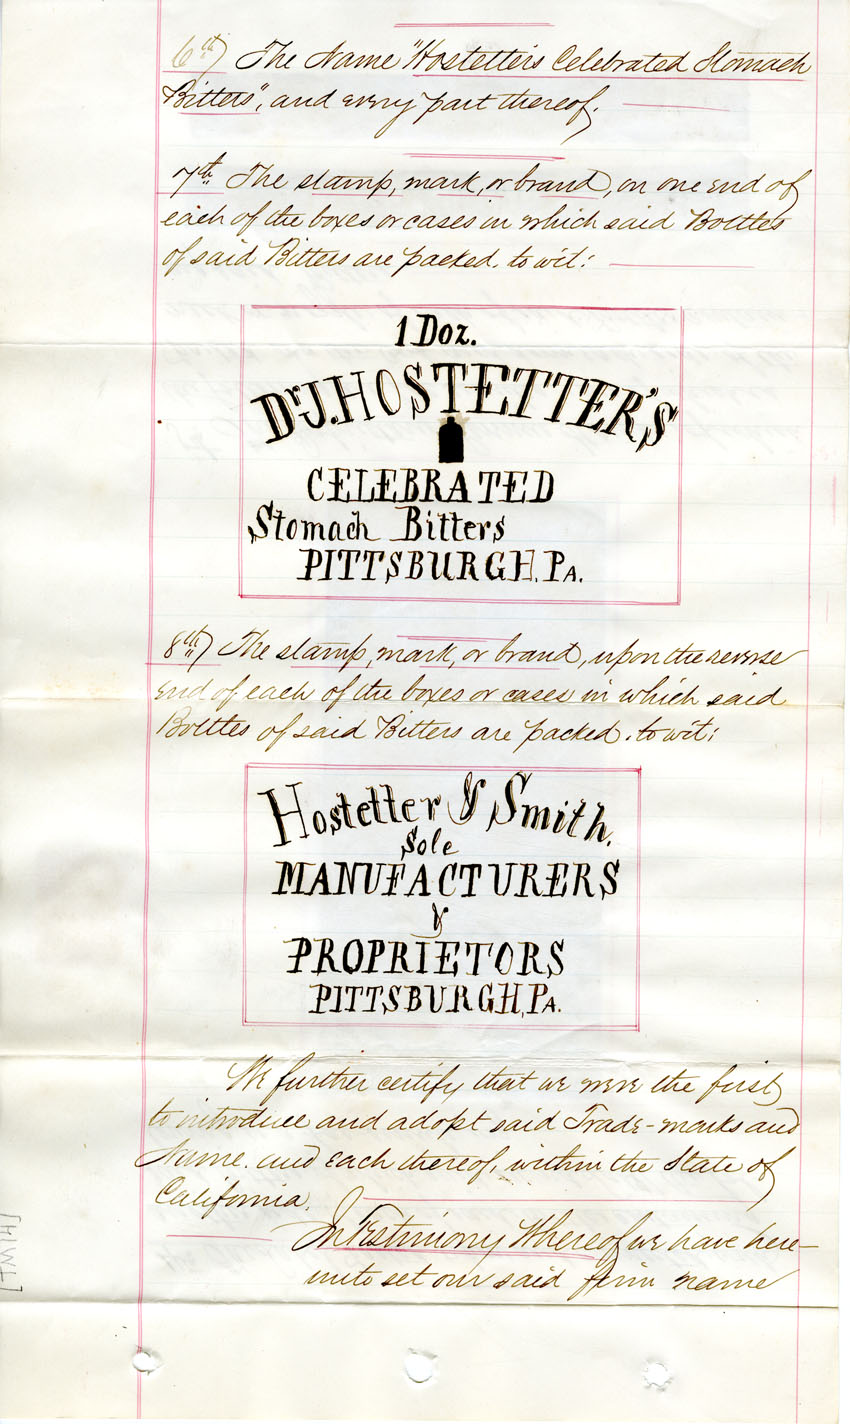 6th) The Name "Hostetter's Celebrated Stomach
Bitters", and every part thereof.
7th The stamp, mark, or brand, on one end of
each of the boxes or cases in which said Bottles
of said Bitters are packed. to wit:
1 Doz.
Dr. J. HOSTETTER'S
CELEBRATED
Stomach Bitters
PITTSBURGH, PA.
8th) The stamp, mark, or brand, upon the reverse
end of each of the boxes or cases in which said
Bottles of said Bitters are packed. to wit:
Hostetter & Smith.
Sole
MANUFACTURERS
&
PROPRIETORS
PITTSBURGH, PA.
We further certify that we were the first
to introduce and adopt said Trade-marks and
Name. and each thereof, within the State of
California.
In Testimony Whereof we have here-
unto set our said firm name